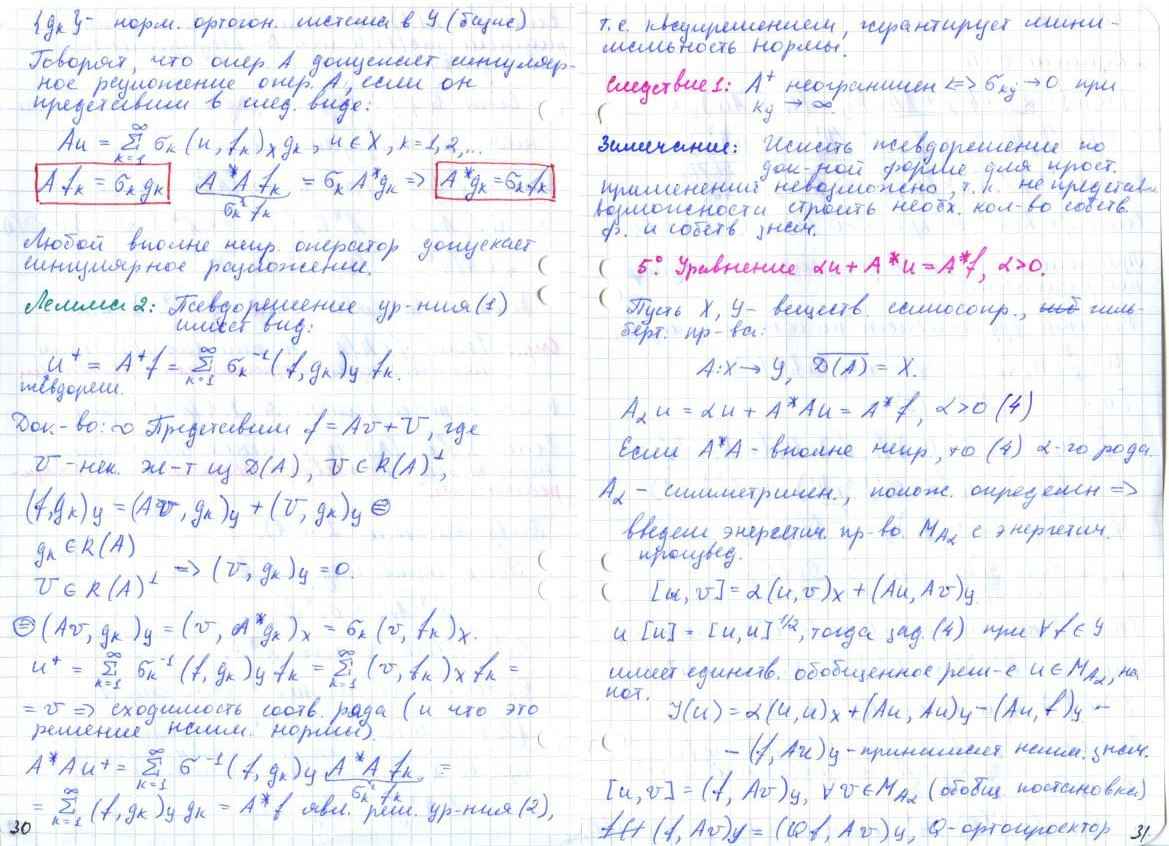 {gₖ}- норм. ортогон. система в Y (базис)
Говорят, что опер. A допускает сингуляр-
ное разложение опер. A, если он
представим в след. виде:
Au = Σ_{k=1}^∞ σₖ(u, fₖ)ₓ gₖ, u∈X, k=1,2,...
A fₖ = σₖ gₖ   A*A fₖ = σₖ A*gₖ => A*gₖ = σₖ fₖ
σₖ² fₖ
Любой вполне непр. оператор допускает
сингулярное разложение.
Лемма 2: Псевдорешение ур-ния (1)
имеет вид:
u⁺ = A⁺f = Σ_{k=1}^∞ σₖ⁻¹ (f, gₖ)_y fₖ.
псевдореш.
Док-во: ∾ Представим f = Av + V, где
v - нек. эл-т из D(A), V∈R(A)^⊥,
(f, gₖ)_y = (Av, gₖ)_y + (V, gₖ)_y ⊜
gₖ ∈ R(A)
V ∈ R(A)^⊥ => (V, gₖ)_y = 0.
⊜ (Av, gₖ)_y = (v, A*gₖ)ₓ = σₖ (v, fₖ)ₓ.
u⁺ = Σ_{k=1}^∞ σₖ⁻¹ (f, gₖ)_y fₖ = Σ_{k=1}^∞ (v, fₖ)ₓ fₖ =
= v => сходимость соотв. ряда (и что это
решение наим. нормы).
A*Au⁺ = Σ_{k=1}^∞ σ⁻¹ (f, gₖ)_y A*A fₖ =
σₖ² fₖ
= Σ_{k=1}^∞ (f, gₖ)_y gₖ = A*f явл. реш. ур-ния (2),
30
т.е. псевдорешением, гарантирует мини-
мальность нормы.
Следствие 1: A⁺ неограничен <=> σ_{kj} → 0 при
kj → ∞.
Замечание: Искать псевдорешение по
док-ной форме для прост.
применений невозможно, т.к. не представл.
возможности строить необх. кол-во собств.
ф. и собств. знач.
5° Уравнение αu + A*u = A*f, α>0.
Пусть X, Y - веществ. самосопр., гиль-
берт. пр-ва:
A: X → Y, D(A) = X.
A_α u = αu + A*Au = A*f, α>0 (4)
Если A*A - вполне непр., то (4) 2-го рода.
A_α - симметричен., полож. определен =>
введем энергетич. пр-во M_{Aα} с энергетич.
произвед.
[u, v] = α(u, v)ₓ + (Au, Av)_y
и [u] = [u, u]^{1/2}, тогда зад. (4) при ∀ f∈Y
имеет единств. обобщенное реш-е u∈M_{Aα}, на
кот.
J(u) = α(u, u)ₓ + (Au, Au)_y - (Au, f)_y -
- (f, Au)_y - принимает наим. знач.
[u, v] = (f, Av)_y, ∀ v∈M_{Aα} (обобщ. постановка)
(f, Av)_y = (Qf, Av)_y, Q - ортопроектор
31